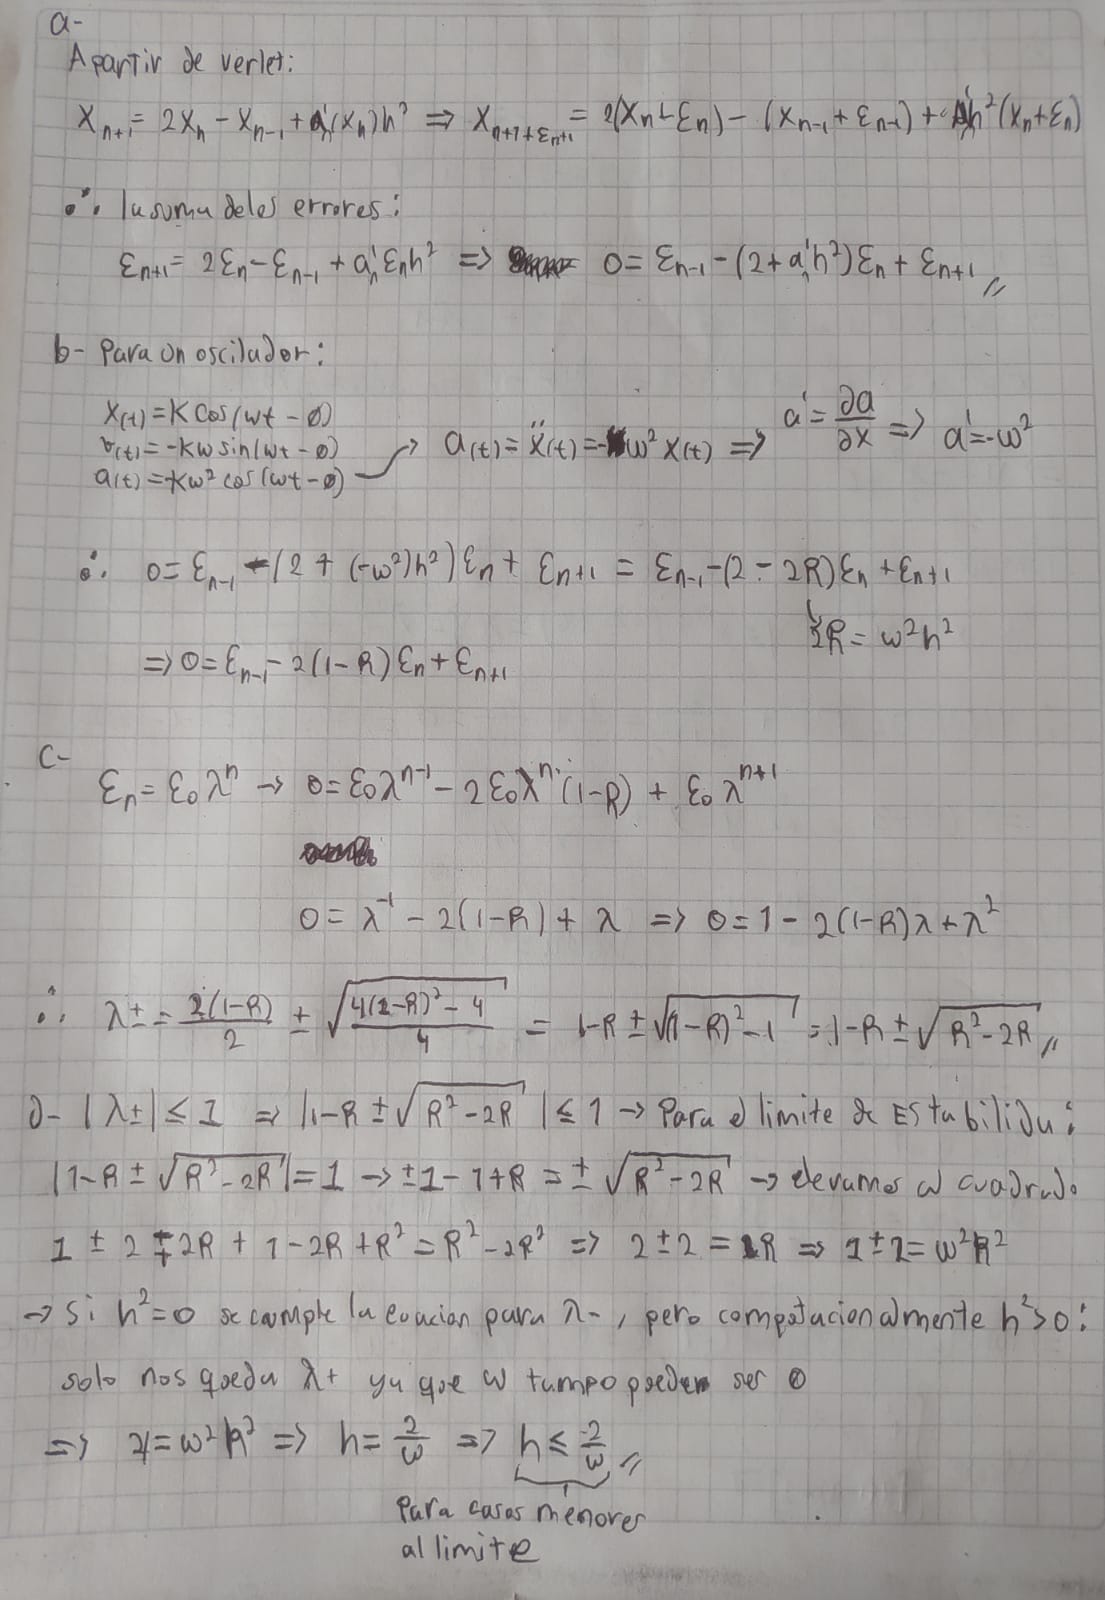 a-
A partir de verlet:
X_{n+1} = 2X_n - X_{n-1} + a(x_n)h² ⇒ X_{n+1+ε_{n+1}} = 2(X_n + ε_n) - (X_{n-1} + ε_{n-1}) + h²(x_n + ε_n)
∴ la suma de los errores:
ε_{n+1} = 2ε_n - ε_{n-1} + a'_n ε_n h² ⇒ 0 = ε_{n-1} - (2 + a'_n h²)ε_n + ε_{n+1} //
b- Para un oscilador:
X(t) = K cos(wt - ø)
v(t) = -Kw sin(wt - ø)
a(t) = -Kw² cos(wt - ø) → a(t) = ẍ(t) = -w² X(t) ⇒ a' = ∂a/∂x ⇒ a' = -w²
∴ 0 = ε_{n-1} - (2 + (-w²)h²)ε_n + ε_{n+1} = ε_{n-1} - (2 - 2R)ε_n + ε_{n+1}
2R = w²h²
⇒ 0 = ε_{n-1} - 2(1-R)ε_n + ε_{n+1}
c-
ε_n = ε_0 λ^n → 0 = ε_0 λ^{n-1} - 2ε_0 λ^n (1-R) + ε_0 λ^{n+1}
0 = λ^{-1} - 2(1-R) + λ ⇒ 0 = 1 - 2(1-R)λ + λ²
∴ λ± = 2(1-R)/2 ± √(4(1-R)² - 4 / 4) = 1-R ± √((1-R)² - 1) = 1-R ± √(R² - 2R) //
d- |λ±| ≤ 1 ⇒ |1-R ± √(R² - 2R)| ≤ 1 → Para el limite de Estabilida:
|1-R ± √(R² - 2R)| = 1 → ±1 - 1 + R = ± √(R² - 2R) → elevamos al cuadrado
1 ± 2 ∓ 2R + 1 - 2R + R² = R² - 2R² ⇒ 2 ± 2 = R ⇒ 1 ± 1 = w²h²
→ Si h² = 0 se cumple la ecuacion para λ-, pero computacionalmente h² > 0:
solo nos queda λ+ ya que w tampo pueden ser 0
⇒ 4 = w²h² ⇒ h = 2/w ⇒ h ≤ 2/w //
Para casos menores
al limite